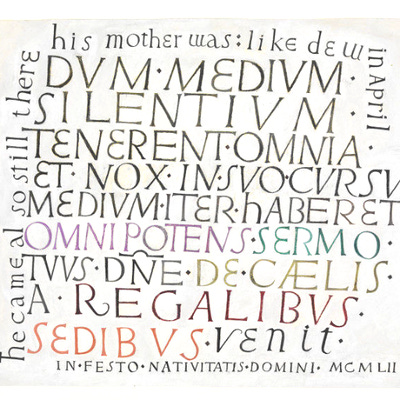 he came al so still there
his mother was: like dew
in April
DVM·MEDIVM·
SILENTIVM·
TENERENT·OMNIA·
ET·NOX·IN·SVO·CVRSV
MEDIVM·ITER·hABERET
OMNIPOTENS·SERMO·
TVVS·DN̄E·DE·CÆLIS·
A·REGALIBVS·
SEDIBVS·venit·
IN·FESTO·NATIVITATIS·DOMINI·MCMLII